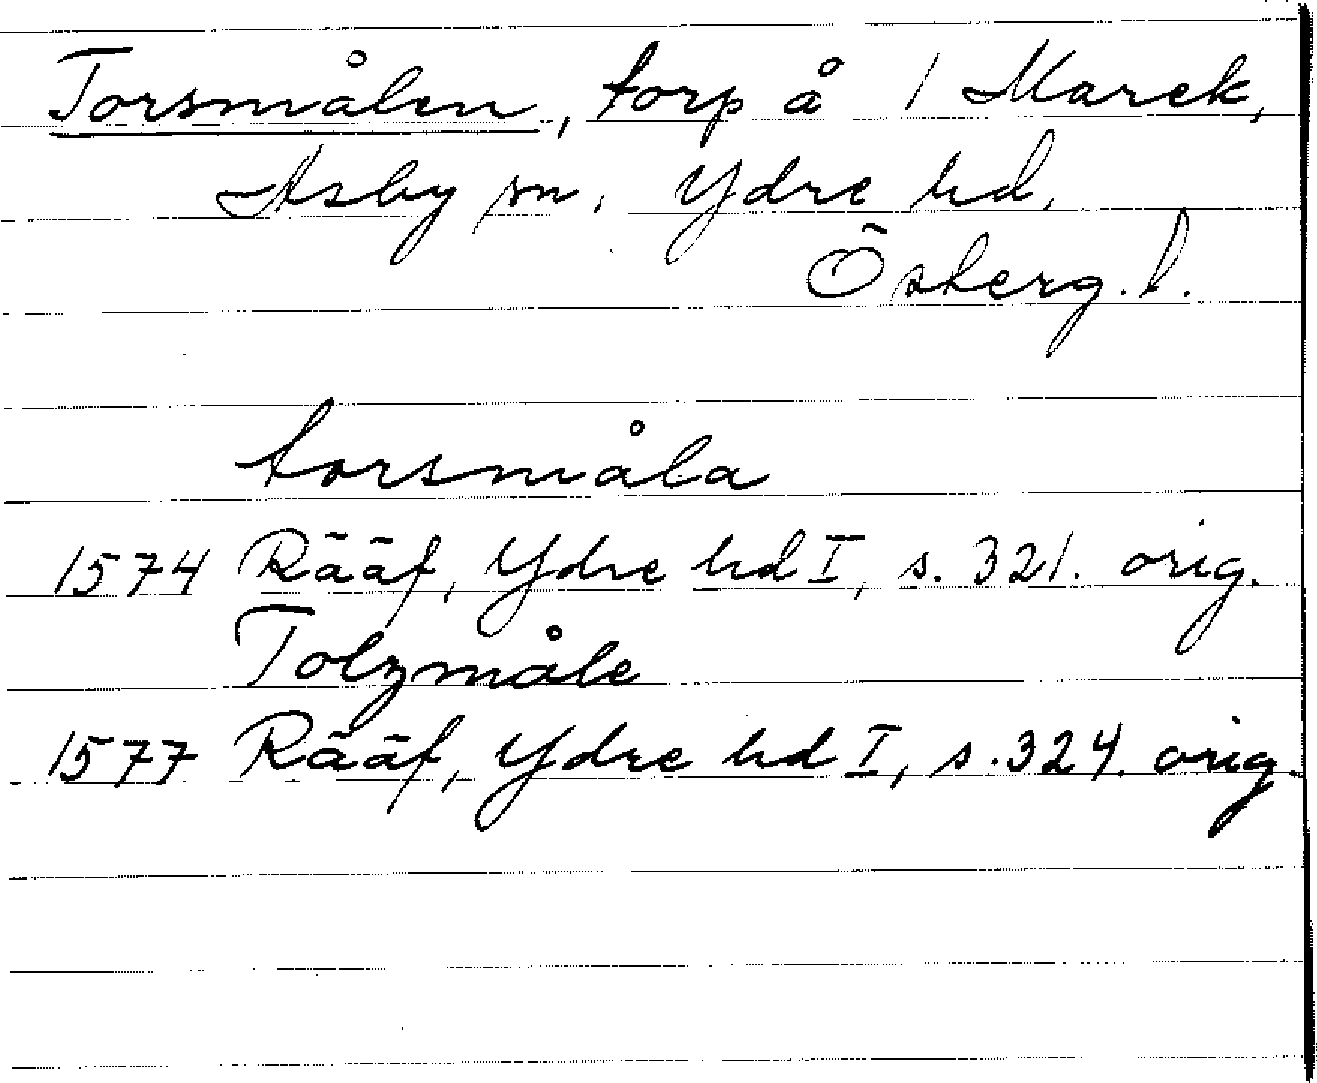 Torsmålen, torp å 1 Marek,
Asby sn. Ydre hd.
Österg. l.
torsmåla
1574 Rääf, Ydre hd I, s. 321. orig.
Tolzmåle
1577 Rääf, Ydre hd I, s. 324. orig.